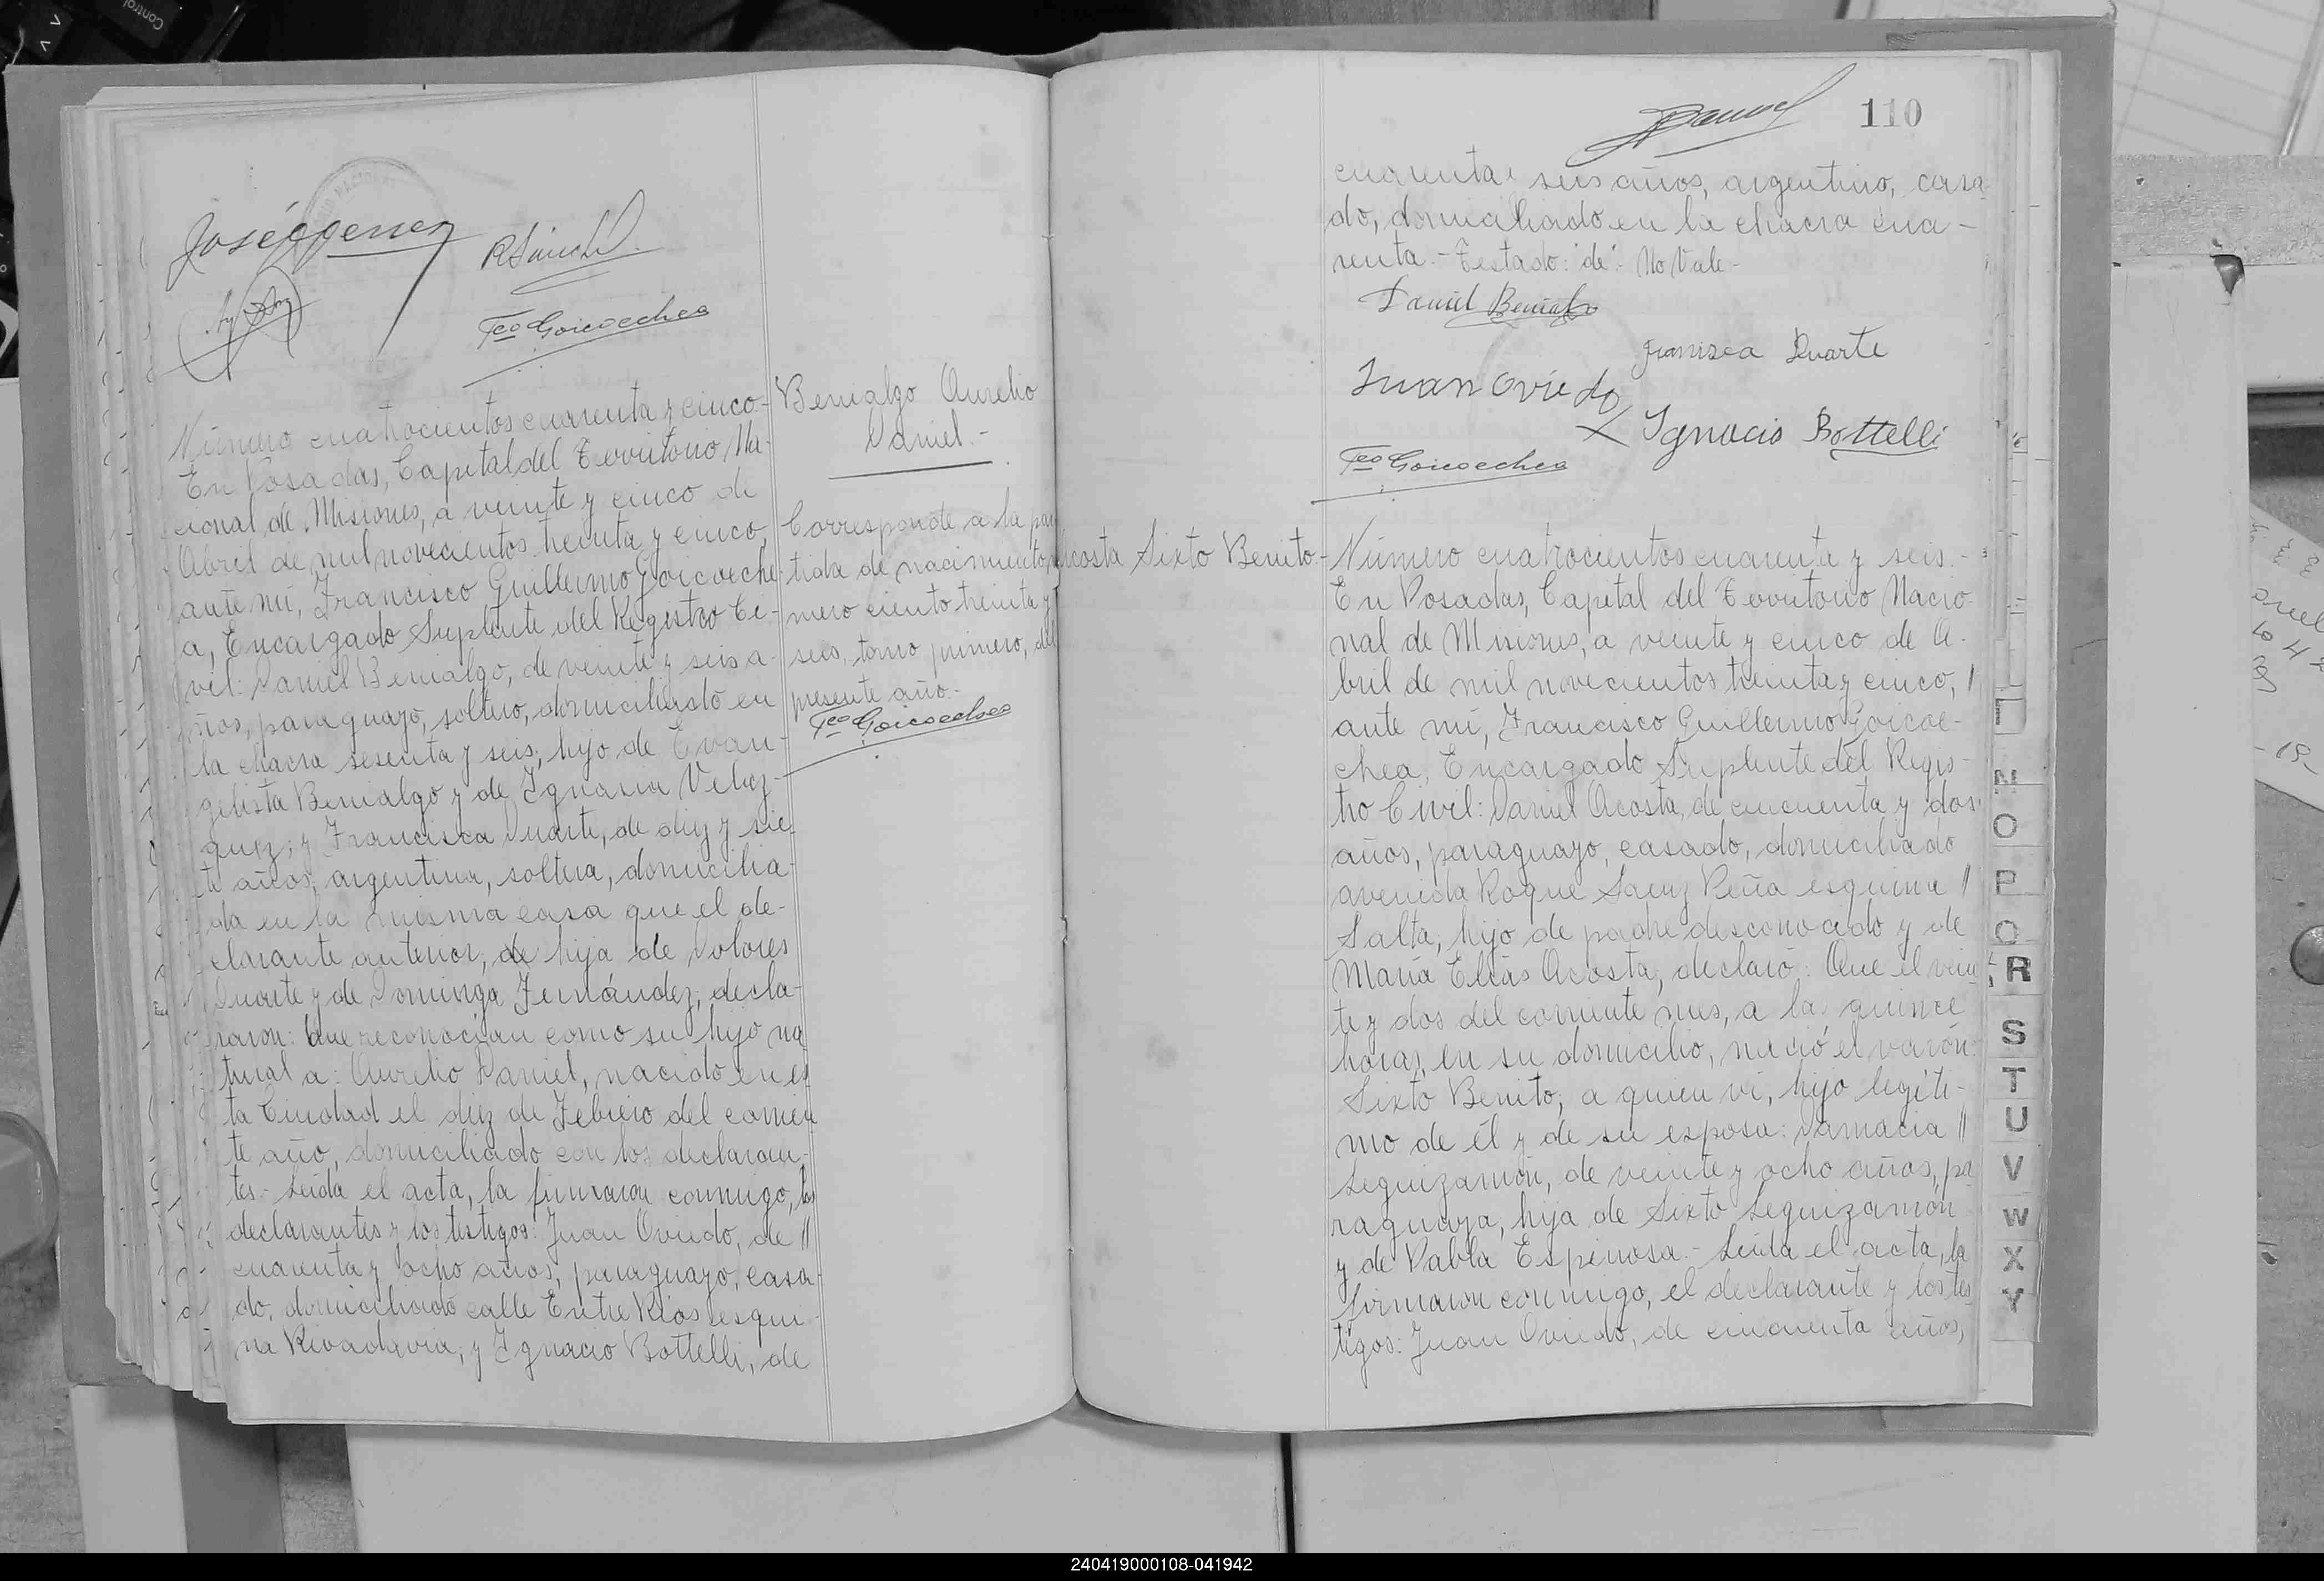 José
RSánchz
Fco Goicoechea
Número cuatrocientos cuarenta y cinco.-
En Posadas, Capital del Territorio Na-
cional de Misiones, a veinte y cinco de
Abril de mil novecientos treinta y cinco,
ante mí, Francisco Guillermo Goicoeche-
a, Encargado Suplente del Registro Ci-
vil: Daniel Benialgo, de veinte y seis a-
ños, paraguayo, soltero, domiciliado en
la chacra sesenta y seis, hijo de Evan-
gelista Benialgo y de Ignacia Velaz-
quez; y Francisca Duarte, de diez y sie-
te años, argentina, soltera, domicilia-
da en la misma casa que el de-
clarante anterior, de hija de Dolores
Duarte y de Dominga Fernández; decla-
raron: Que reconocían como su hijo na
tural a: Aurelio Daniel, nacido en es
ta Ciudad el diez de Febrero del corrien
te año, domiciliado con los declaran-
tes.- Leída el acta, la firmaron conmigo, los
declarantes y los testigos: Juan Oviedo, de //
cuarenta y ocho años, paraguayo, casa-
do, domiciliado calle Entre Ríos esqui-
na Rivadavia; y Ignacio Bottelli, de
Benialgo Aurelio
Daniel.-
Corresponde a la par
tida de nacimiento nú
mero ciento treinta y
seis, tomo primero, del
presente año.-
Fco Goicoechea
110
cuarenta y seis años, argentino, casa-
do, domiciliado en la chacra cua-
renta.- Testado: "de": No Vale.-
Daniel Benialgo
Francisca Duarte
Juan Oviedo
Ignacio Bottelli
Fco Goicoechea
Acosta Sixto Benito.-
Número cuatrocientos cuarenta y seis.-
En Posadas, Capital del Territorio Nacio-
nal de Misiones, a veinte y cinco de A-
bril de mil novecientos treinta y cinco, /
ante mí, Francisco Guillermo Goicoe-
chea, Encargado Suplente del Regis-
tro Civil: Daniel Acosta, de cincuenta y dos
años, paraguayo, casado, domiciliado
avenida Roque Saenz Peña esquina //
Salta, hijo de padre desconocido y de
María Elías Acosta, declaró: Que el vein
te y dos del corriente mes, a la quince
horas, en su domicilio, nació el varón:
Sixto Benito, a quien vi, hijo legíti-
mo de él y de su esposa: Damacia //
Leguizamón, de veinte y ocho años, pa
raguaya, hija de Sixto Leguizamón
y de Pabla Espinosa.- Leída el acta, la
firmaron conmigo, el declarante y los tes
tigos: Juan Oviedo, de cincuenta años,
N
O
P
Q
R
S
T
U
V
W
X
Y
240419000108-041942